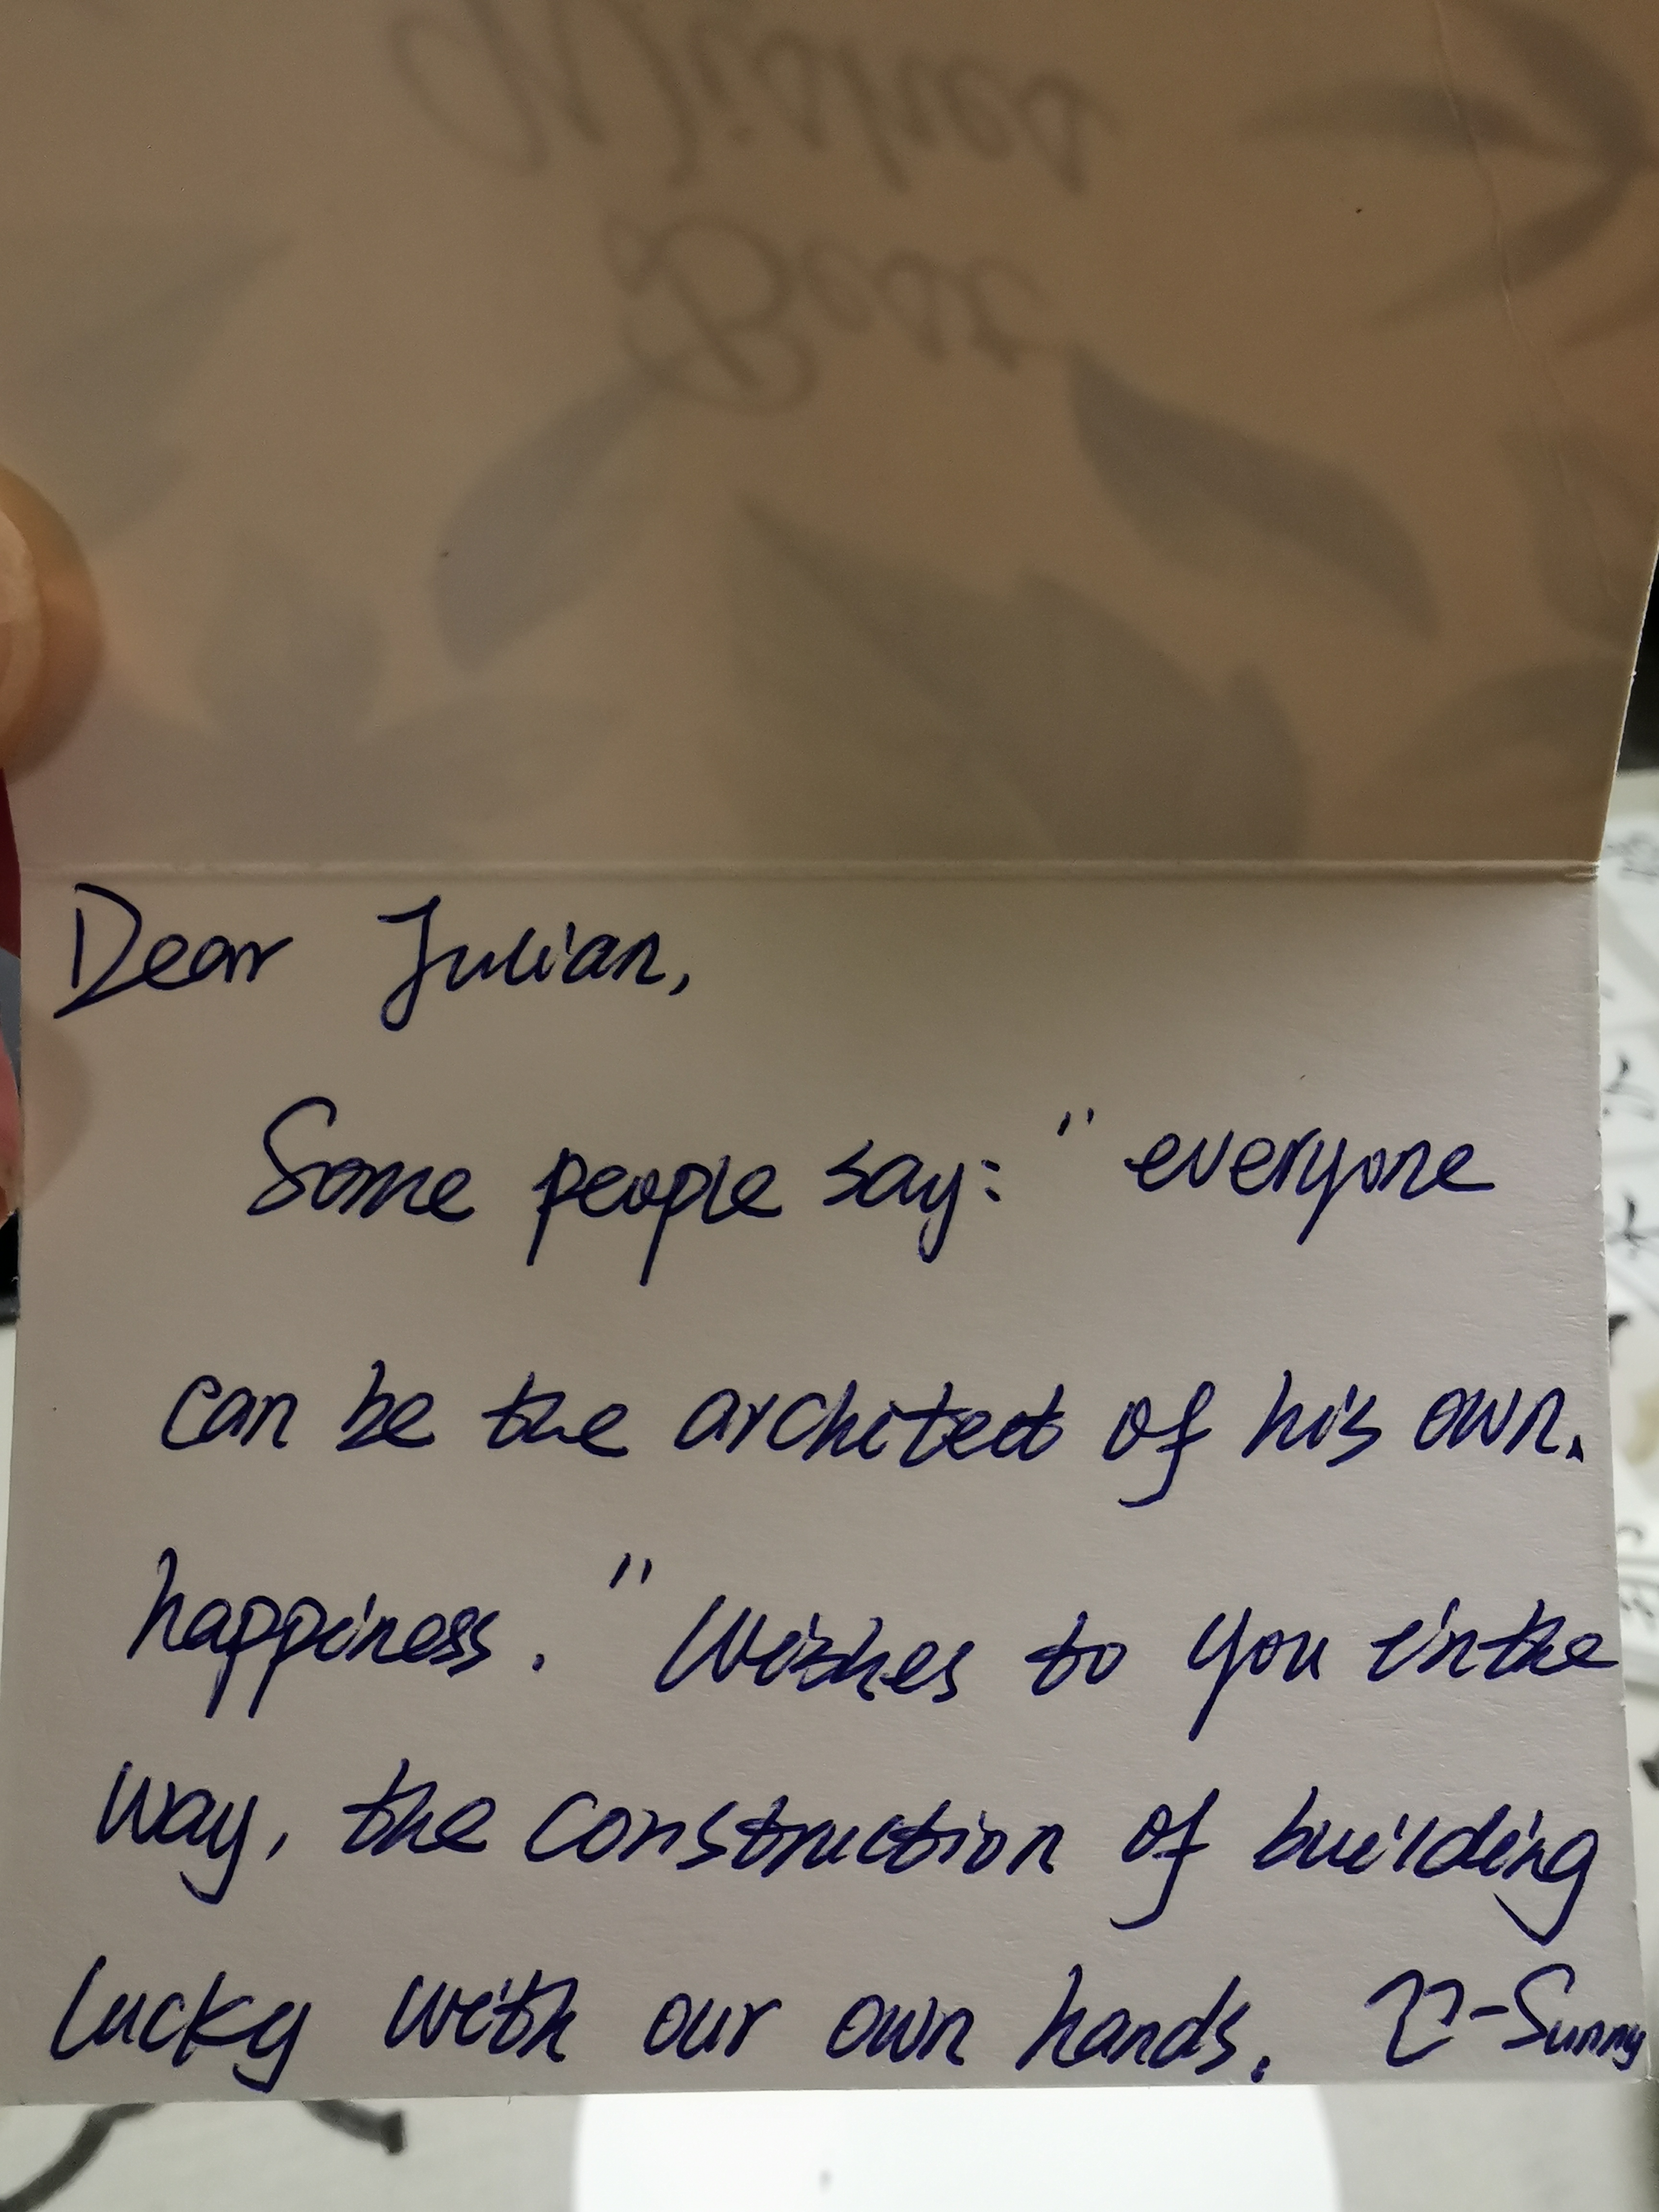 Best
Wishes
Dear Julian,
Some people say: " everyone
can be the architect of his own.
happiness. " Wishes to you in the
way, the construction of building
lucky with our own hands. -Sunny